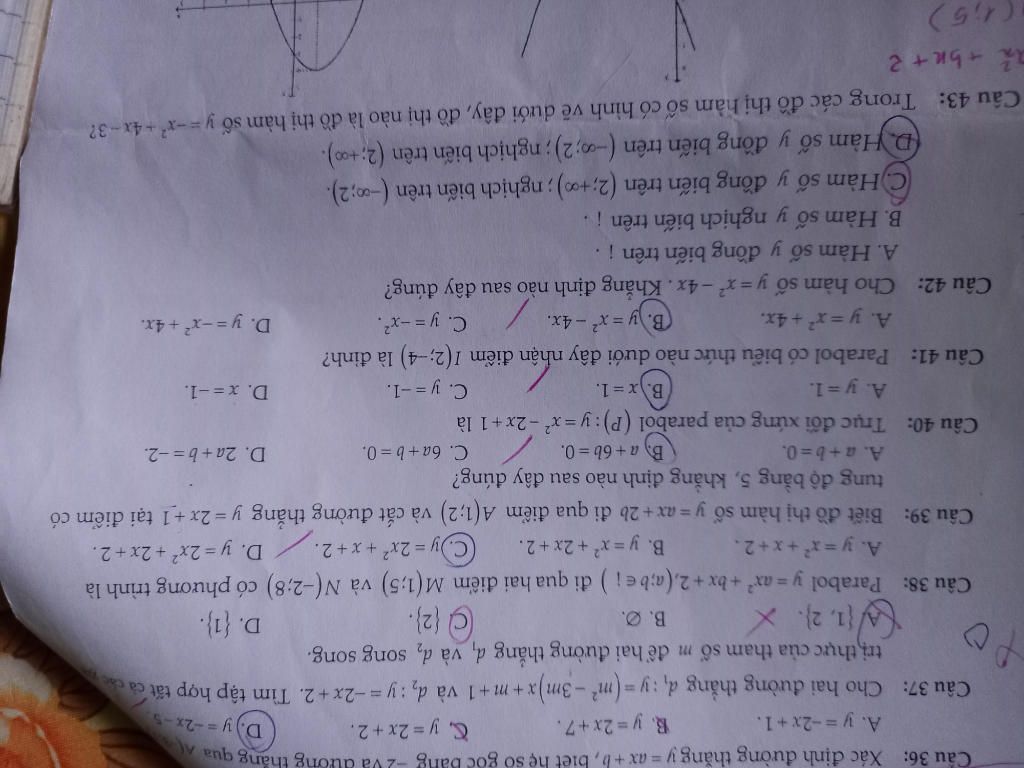 Câu 36: Xác định đường thẳng y = ax + b, biết hệ số góc bằng −2 và đường thẳng qua
A. y = −2x + 1. B. y = 2x + 7. C. y = 2x + 2. D. y = −2x − 5.
Câu 37: Cho hai đường thẳng d₁ : y = (m² − 3m)x + m + 1 và d₂ : y = −2x + 2. Tìm tập hợp tất cả các
trị thực của tham số m để hai đường thẳng d₁ và d₂ song song.
A. {1, 2}. B. ∅. C. {2}. D. {1}.
Câu 38: Parabol y = ax² + bx + 2, (a; b ∈ ¡ ) đi qua hai điểm M(1;5) và N(−2;8) có phương trình là
A. y = x² + x + 2. B. y = x² + 2x + 2. C. y = 2x² + x + 2. D. y = 2x² + 2x + 2.
Câu 39: Biết đồ thị hàm số y = ax + 2b đi qua điểm A(1;2) và cắt đường thẳng y = 2x + 1 tại điểm có
tung độ bằng 5, khẳng định nào sau đây đúng?
A. a + b = 0. B. a + 6b = 0. C. 6a + b = 0. D. 2a + b = −2.
Câu 40: Trục đối xứng của parabol (P) : y = x² − 2x + 1 là
A. y = 1. B. x = 1. C. y = −1. D. x = −1.
Câu 41: Parabol có biểu thức nào dưới đây nhận điểm I(2;−4) là đỉnh?
A. y = x² + 4x. B. y = x² − 4x. C. y = −x². D. y = −x² + 4x.
Câu 42: Cho hàm số y = x² − 4x. Khẳng định nào sau đây đúng?
A. Hàm số y đồng biến trên ¡ .
B. Hàm số y nghịch biến trên ¡ .
C. Hàm số y đồng biến trên (2;+∞); nghịch biến trên (−∞;2).
D. Hàm số y đồng biến trên (−∞;2); nghịch biến trên (2;+∞).
Câu 43: Trong các đồ thị hàm số có hình vẽ dưới đây, đồ thị nào là đồ thị hàm số y = −x² + 4x − 3?
+ bx + 2
(1;5)